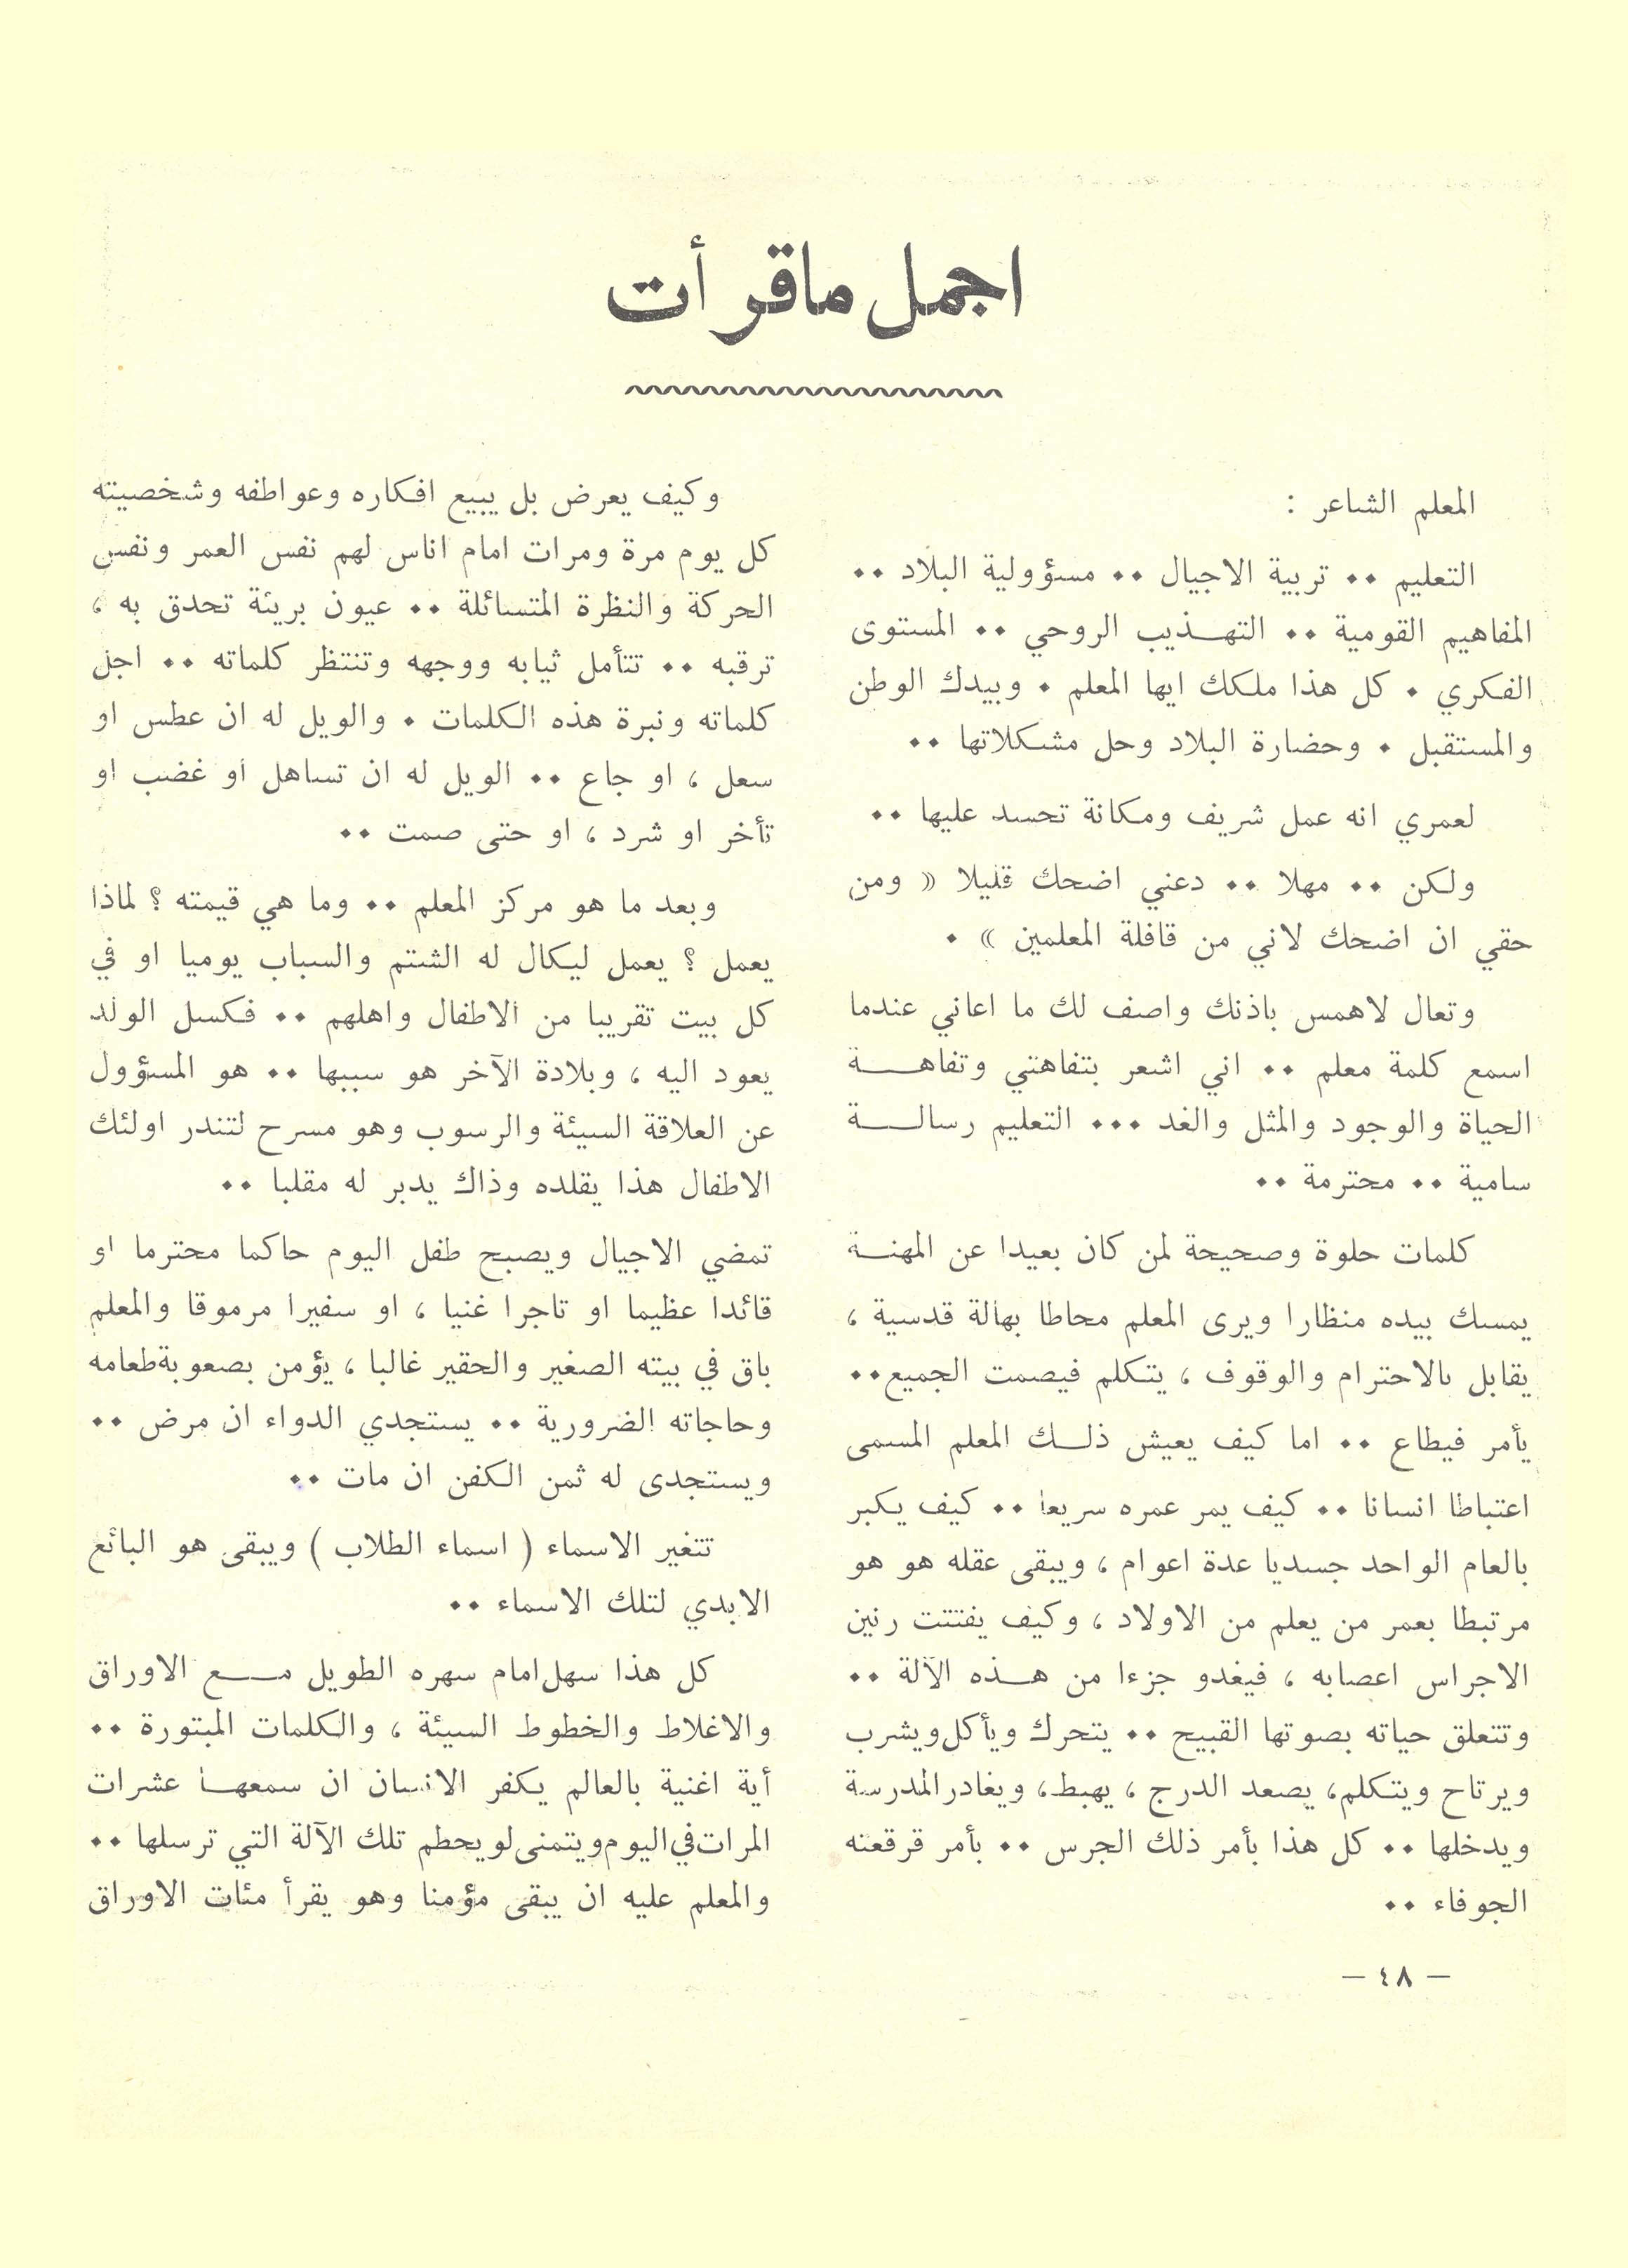 اجمل ماقرأت
المعلم الشاعر :
التعليم ٠٠ تربية الاجيال ٠٠ مسؤولية البلاد ٠٠
المفاهيم القومية ٠٠ التهذيب الروحي ٠٠ المستوى
الفكري ٠ كل هذا ملكك ايها المعلم ٠ وبيدك الوطن
والمستقبل ٠ وحضارة البلاد وحل مشكلاتها ٠٠
لعمري انه عمل شريف ومكانة تحسد عليها ٠٠
ولكن ٠٠ مهلا ٠٠ دعني اضحك قليلا « ومن
حقي ان اضحك لاني من قافلة المعلمين » ٠
وتعال لاهمس باذنك واصف لك ما اعاني عندما
اسمع كلمة معلم ٠٠ اني اشعر بتفاهتي وتفاهة
الحياة والوجود والمثل والغد ٠٠٠ التعليم رسالة
سامية ٠٠ محترمة ٠٠
كلمات حلوة وصحيحة لمن كان بعيدا عن المهنة
يمسك بيده منظارا ويرى المعلم محاطا بهالة قدسية ،
يقابل بالاحترام والوقوف ، يتكلم فيصمت الجميع٠٠
يأمر فيطاع ٠٠ اما كيف يعيش ذلك المعلم المسمى
اعتباطا انسانا ٠٠ كيف يمر عمره سريعا ٠٠ كيف يكبر
بالعام الواحد جسديا عدة اعوام ، ويبقى عقله هو هو
مرتبطا بعمر من يعلم من الاولاد ، وكيف يفتتت رنين
الاجراس اعصابه ، فيغدو جزءا من هذه الآلة ٠٠
وتتعلق حياته بصوتها القبيح ٠٠ يتحرك ويأكل ويشرب
ويرتاح ويتكلم، يصعد الدرج ، يهبط، ويغادر المدرسة
ويدخلها ٠٠ كل هذا بأمر ذلك الجرس ٠٠ بأمر قرقعته
الجوفاء ٠٠
وكيف يعرض بل يبيع افكاره وعواطفه وشخصيته
كل يوم مرة ومرات امام اناس لهم نفس العمر ونفس
الحركة والنظرة المتسائلة ٠٠ عيون بريئة تحدق به ،
ترقبه ٠٠ تتأمل ثيابه ووجهه وتنتظر كلماته ٠٠ اجل
كلماته ونبرة هذه الكلمات ٠ والويل له ان عطس او
سعل ، او جاع ٠٠ الويل له ان تساهل او غضب او
تأخر او شرد ، او حتى صمت ٠٠
وبعد ما هو مركز المعلم ٠٠ وما هي قيمته ؟ لماذا
يعمل ؟ يعمل ليكال له الشتم والسباب يوميا او في
كل بيت تقريبا من الاطفال واهلهم ٠٠ فكسل الولد
يعود اليه ، وبلادة الآخر هو سببها ٠٠ هو المسؤول
عن العلاقة السيئة والرسوب وهو مسرح لتندر اولئك
الاطفال هذا يقلده وذاك يدبر له مقلبا ٠٠
تمضي الاجيال ويصبح طفل اليوم حاكما محترما او
قائدا عظيما او تاجرا غنيا ، او سفيرا مرموقا والمعلم
باق في بيته الصغير والحقير غالبا ، يؤمن بصعوبة طعامه
وحاجاته الضرورية ٠٠ يستجدي الدواء ان مرض ٠٠
ويستجدى له ثمن الكفن ان مات ٠٠
تتغير الاسماء ( اسماء الطلاب ) ويبقى هو البائع
الابدي لتلك الاسماء ٠٠
كل هذا سهل امام سهره الطويل مع الاوراق
والاغلاط والخطوط السيئة ، والكلمات المبتورة ٠٠
أية اغنية بالعالم يكفر الانسان ان سمعها عشرات
المرات في اليوم ويتمنى لو يحطم تلك الآلة التي ترسلها ٠٠
والمعلم عليه ان يبقى مؤمنا وهو يقرأ مئات الاوراق
— ٤٨ —